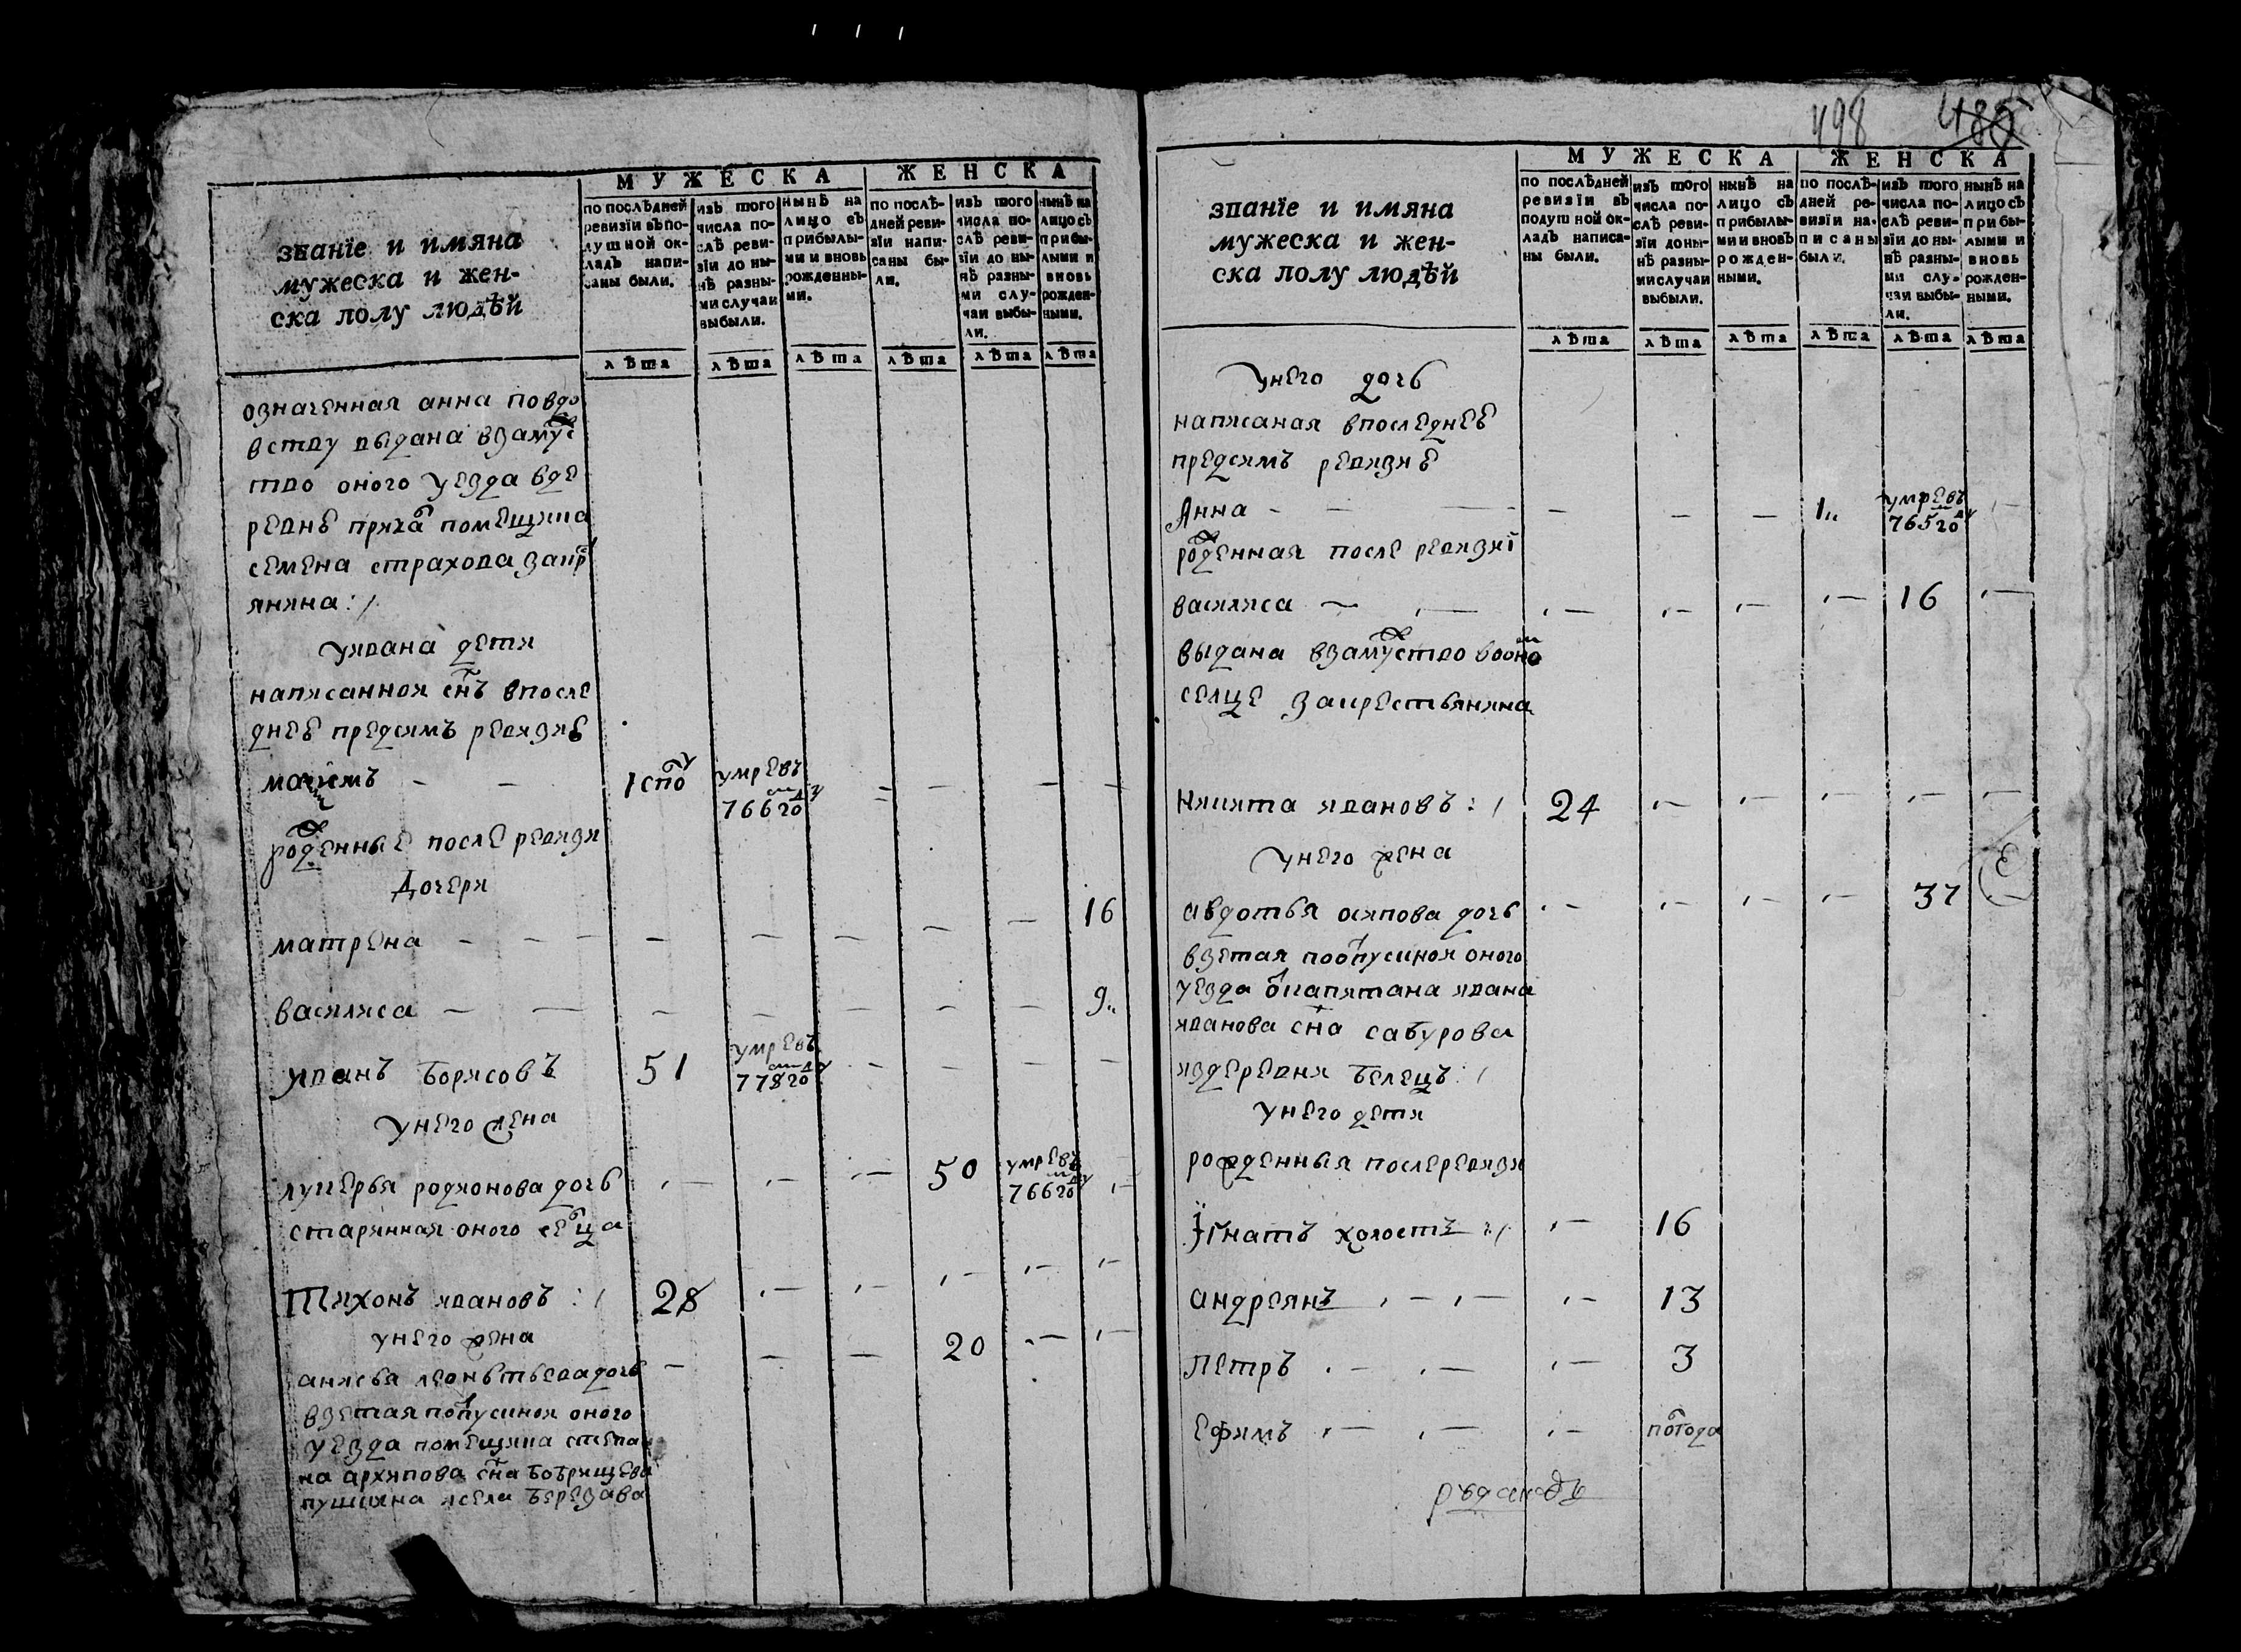 МУЖЕСКА ЖЕНСКА
званїе и имяна
мужеска и жен-
ска полу людѣй
по послѣдней
ревизїи въ по-
душной ок-
ладъ напи-
саны были.
изъ того
числа по-
слѣ реви-
зїи до ны-
нѣ разны-
ми случаи
выбыли.
нынѣ на
лицо съ
прибылы-
ми и вновь
рожденны-
ми.
по послѣ-
дней реви-
зїи напи-
саны бы-
ли.
изъ того
числа по-
слѣ реви-
зїи до ны-
нѣ разны-
ми слу-
чаи выбы-
ли.
нынѣ на
лицо съ
прибы-
лыми и
вновь
рожден-
ными.
лѣта лѣта лѣта лѣта лѣта лѣта
означенная анна повдо
вству выдана взамуж
тво оного уезда вде
ревне помещика
семена страхова закр
янина :/
уивана дети
написанной снъ впосле
днее предсимъ ревизие
мазимъ - - 1 спо умре въ 766 году
рожденные после ревизи
дочери
матрена - - - - - - - - 16
василиса - - - - - - - 9
иванъ борисовъ 51 умре въ 778 году - - - -
унего жена
лукерья родионова дочь - - - 50 умре въ 766 году -
старинная оного селца
Тихонъ ивановъ :/ 28 - - - - -
унего жена
анисья леонтьева дочь - - - 20 - -
взетая поотпускной оного
уезда помещика степа
на архипова сна бобрищева
пушкина исела березава
498 486
МУЖЕСКА ЖЕНСКА
званїе и имяна
мужеска и жен-
ска полу людѣй
по послѣдней
ревизїи въ
подушной ок-
ладъ написа-
ны были.
изъ того
числа по-
слѣ реви-
зїи до ны-
нѣ разны-
ми случаи
выбыли.
нынѣ на
лицо съ
прибылы-
ми и вновь
рожден-
ными.
по послѣ-
дней ре-
визїи на-
писаны
были.
изъ того
числа по-
слѣ реви-
зїи до ны-
нѣ разны-
ми слу-
чаи выбы-
ли.
нынѣ на
лицо съ
прибы-
лыми и
вновь
рожден-
ными.
лѣта лѣта лѣта лѣта лѣта лѣта
унего дочь
написаная впоследнее
предсимъ ревизие
Анна - - - - - - 1 умре въ 765 году -
рожденная после ревизиї
василиса - - - - - - 16 -
выдана взамужство вооном
селце закрестьянина
Никита ивановъ :/ 24 - - - - -
унего жена
авдотья осипова дочь - - - - 37
взетая поотпускной оного
уезда от капитана ивана
иванова сна сабурова
издеревни белецъ :/
унего дети
рожденныя послеревизи
Їгнатъ холостъ :/ - 16
андреянъ - - - 13
Петръ - - - 3
ефимъ - - - полгода